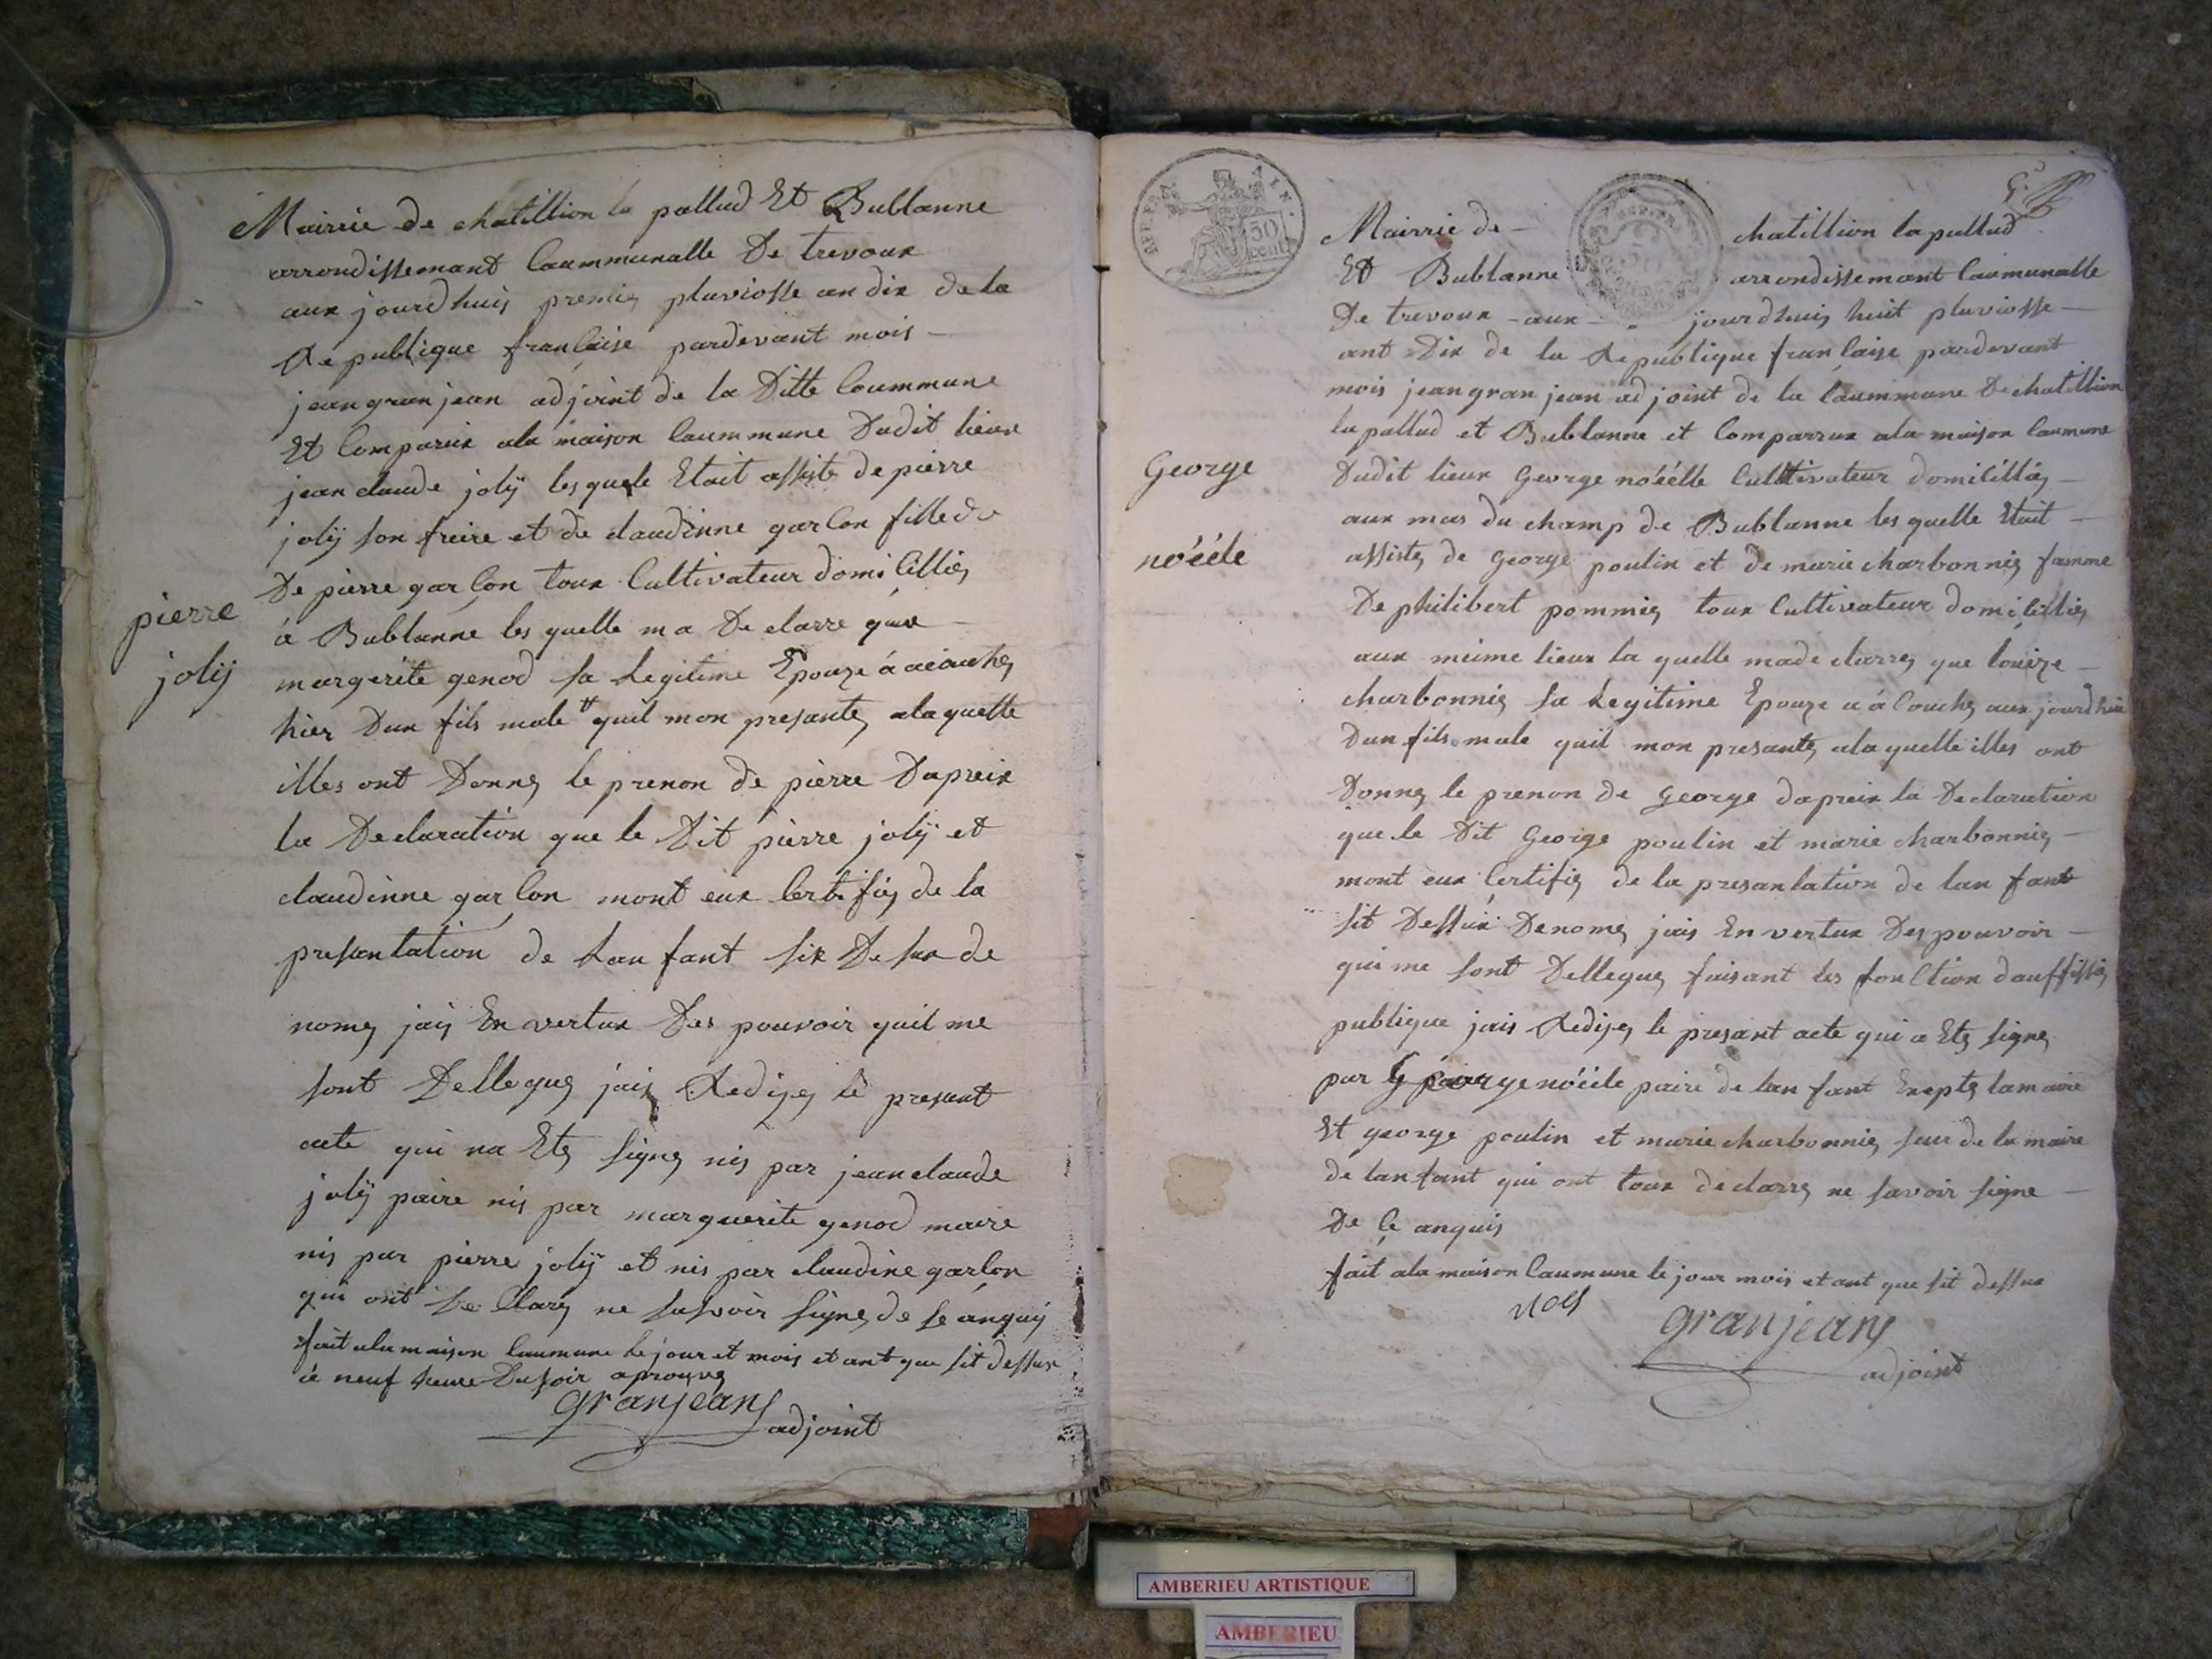 Mairrie de chatillion la pallud Et Bublanne
arrondissemant Caummunalle De trevoux
aux jourdhuis premié pluviosse an dix de la
Republique francaise pardevant mois
jean granjean adjoint de la Ditte Coummune
Et Comparux ala maison Caummune Dudit lieux
jean claude jolÿ lesquele Etait assisté de pierre
jolÿ son freire et de claudinne garçon fille de
De pierre garçon toux Cultivateur domiçillié
á Bublanne les quelle ma De clarré que
pierre
jolij
margerite genod sa Legitime Epouze á acouché
hier Dun fils male quil mon presanté ala quelle
illes ont Donné le prenon de pierre Dapreix
la Declaration que le Dit pierre jolÿ et
claudinne garçon mont eux Certifié de la
presantation de Lan fant six De sux de
nomé jaij En vertux Des pouvoir quil me
sont Dellegué jais Redigé le presant
acte qui na Eté signé nis par jean claude
jolÿ paire nis par marguerite genod maire
nis par pierre jolÿ et nis par claudine garçon
qui ont De Claré ne savoir signé de se anquij
fait ala maison Caumune le jour et mois et ant que sit dessux
á neuf heure Du soir aprouvé
granjean
adjoint
50
cent
Mairrie de chatillion la pallud
Et Bublanne arrondissemant Caumunalle
De trevoux aux jourdhuis huit pluviosse
ant Dix de la Republique francaise pardevant
mois jean gran jean adjoint de la Caummune De chatillion
la pallud et Bublanne et Comparrux ala maison Caumune
George
noééle
Dudit lieux George noéélle Culttivateur domiçillié
aux mas du champ de Bublanne les quelle Etait
assisté de George poulin et de marie charbonnié famme
De philibert pommié toux Cultivateur domiçillié
aux meime lieux la quelle ma de clarré que louize
charbonnié sa Legitime Epouze a á Couché aux jourdhui
Dun fils male quil mon presanté ala quelle illes ont
Donné le prenon de George dapreix la Declaration
que le Dit George poulin et marie charbonnié
mont eux Certifié de la presantation de lan fant
sit Dessux Denomé jais En vertux Des pouvoir
qui me sont Dellegué faisant les fonction dauffissié
publique jais Redigé le presant acte qui a Eté signé
par George noéele paire de lan fant Exepté lamaire
Et george poulin et marie charbonnié seur de la maire
de lanfant qui ont toux declarré ne savoir signe
De çe anquis
fait ala maison Caumune le jour mois et ant que sit dessux
noel
granjean
adjoint
AMBERIEU ARTISTIQUE
AMBERIEU